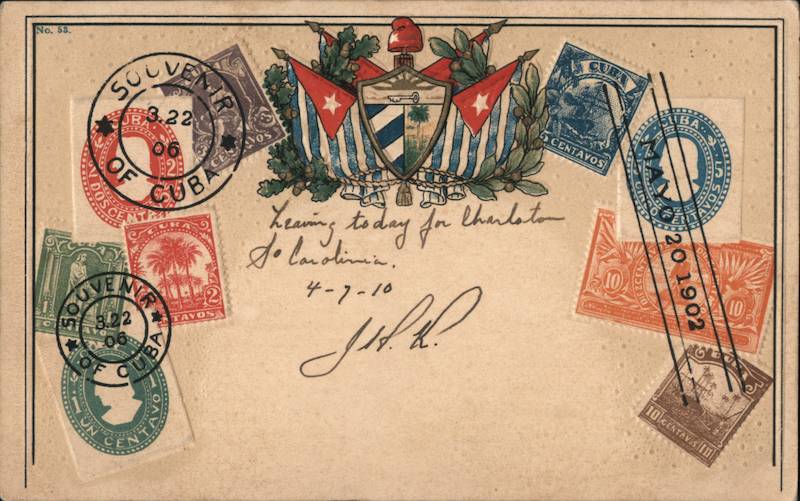 No. 53.
SOUVENIR
3.22
06
OF CUBA
CUBA
2
DOS CENT
3
CENTAVOS
CUBA
2
CENTAVOS
SOUVENIR
3.22
06
OF CUBA
1 UN CENTAVO 1
CUBA
5 CENTAVOS
CUBA
5
CENTAVOS
MAYO 20 1902
10
10
10 CENTAVOS 10
Leaving today for Charleston
So Carolinia.
4-7-10
J.H.K.